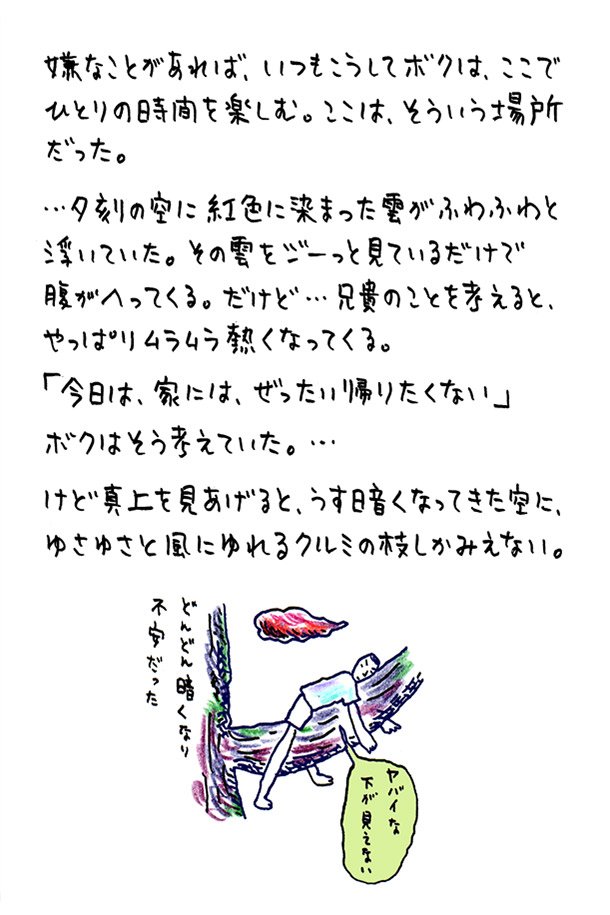 嫌なことがあれば、いつもこうしてボクは、ここで
ひとりの時間を楽しむ。ここは、そういう場所
だった。
…夕刻の空に紅色に染まった雲がふわふわと
浮いていた。その雲をじーっと見ているだけで
腹がへってくる。だけど…兄貴のことを考えると、
やっぱりムラムラ熱くなってくる。
「今日は、家には、ぜったい帰りたくない」
ボクはそう考えていた。…
けど真上を見あげると、うす暗くなってきた空に、
ゆさゆさと風にゆれるクルミの枝しかみえない。
どんどん暗くなり
不安だった
ヤバイな
下が見えない